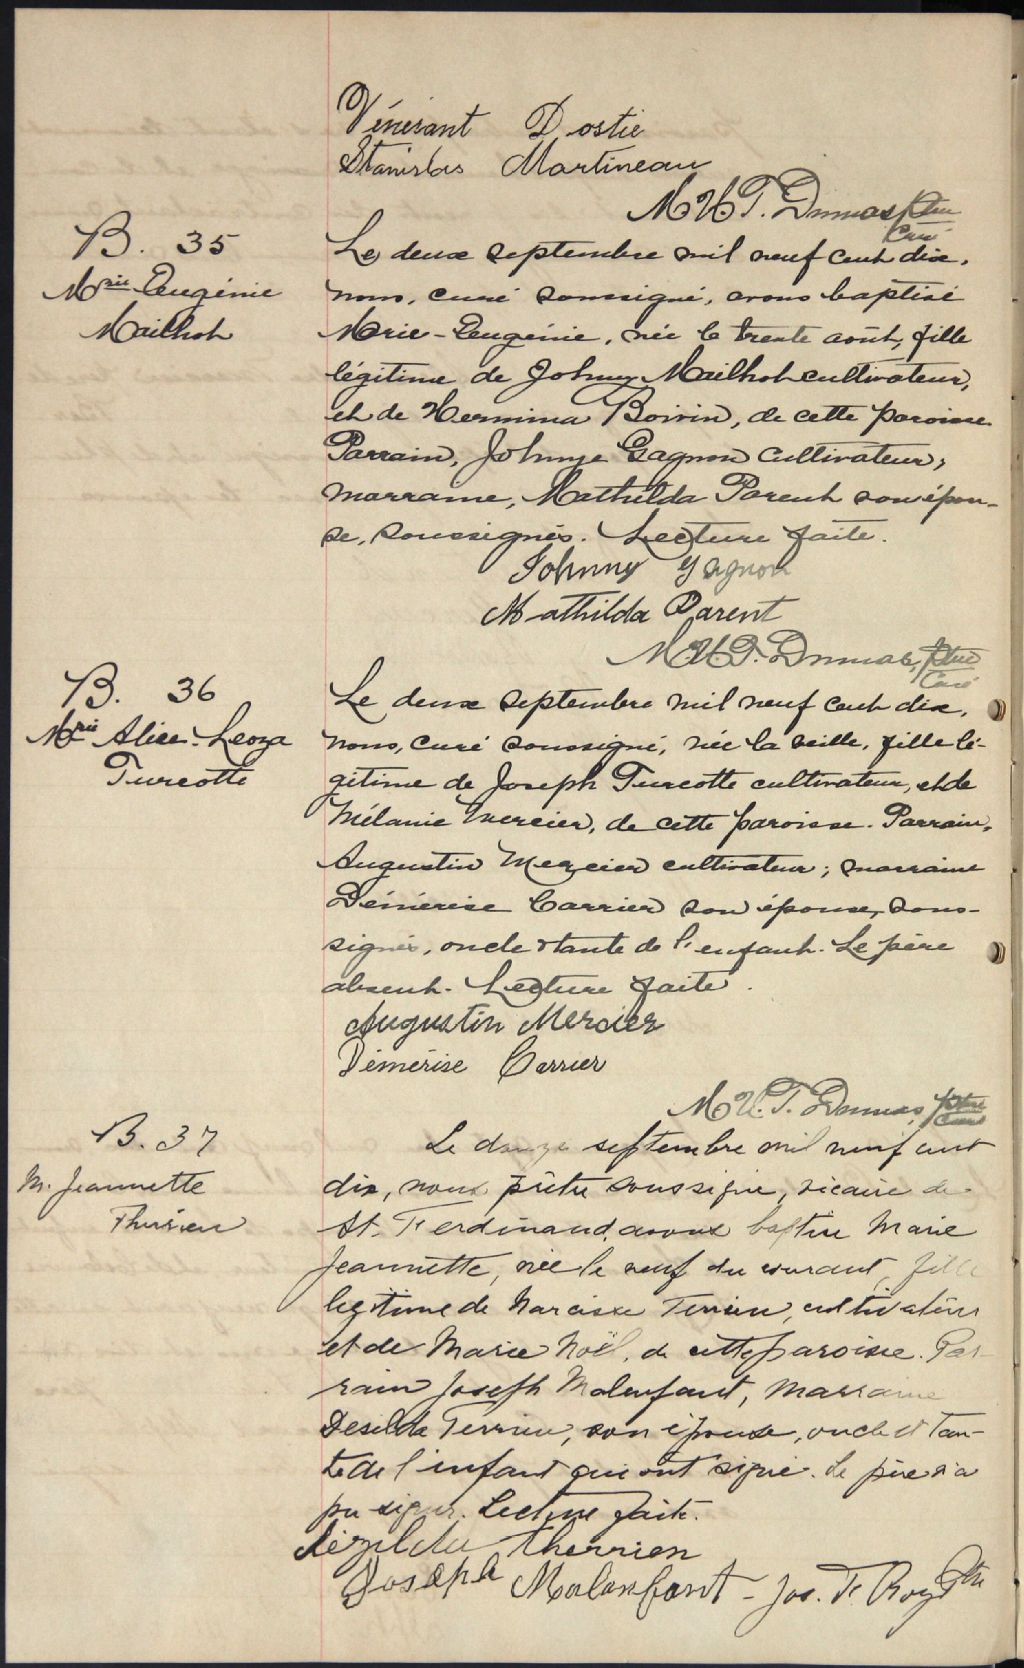 Vénérant Dostie
Stanislas Martineau
M U T. Dumas ptre
Curé
B. 35
Mrie Eugénie
Mailhot
Le deux septembre mil neuf cent dix,
nous, curé soussigné, avons baptisé
Marie-Eugénie, née le trente août, fille
légitime de Johnny Mailhot cultivateur,
et de Hermina Boivin, de cette paroisse.
Parrain, Johnny Gagnon cultivateur,
marraine, Mathilda Parent son épou-
se, soussignés. Lecture faite.
Johnny Gagnon
Mathilda Parent
M. U. T. Dumas, ptre
Curé
B. 36
Mrie Alice-Leoza
Turcotte
Le deux septembre mil neuf cent dix,
nous, curé soussigné, née la veille, fille lé-
gitime de Joseph Turcotte cultivateur, et de
Mélanie Mercier, de cette paroisse. Parrain,
Augustin Mercier cultivateur; marraine
Démérise Carrier son épouse, sous-
signés, oncle & tante de l'enfant. Le père
absent. Lecture faite.
Augustin Mercier
Démérise Carrier
M U. T. Dumas, ptre
curé
B. 37
M. Jeannette
Therien
Le douze septembre mil neuf cent
dix, nous prêtre soussigné, vicaire de
St. Ferdinand, avons baptisé Marie
Jeannette, née le neuf du courant, fille
légitime de Narcisse Terrien, cultivateur
et de Marie Noël, de cette paroisse. Par-
rain Joseph Malenfant, marraine
Desilda Terrien, son épouse, oncle et tan-
te de l'enfant qui ont signé. Le père n'a
pu signer. Lecture faite.
Dézilda Therrien
Joseph Malenfant - Jos. T. Roy Ptre